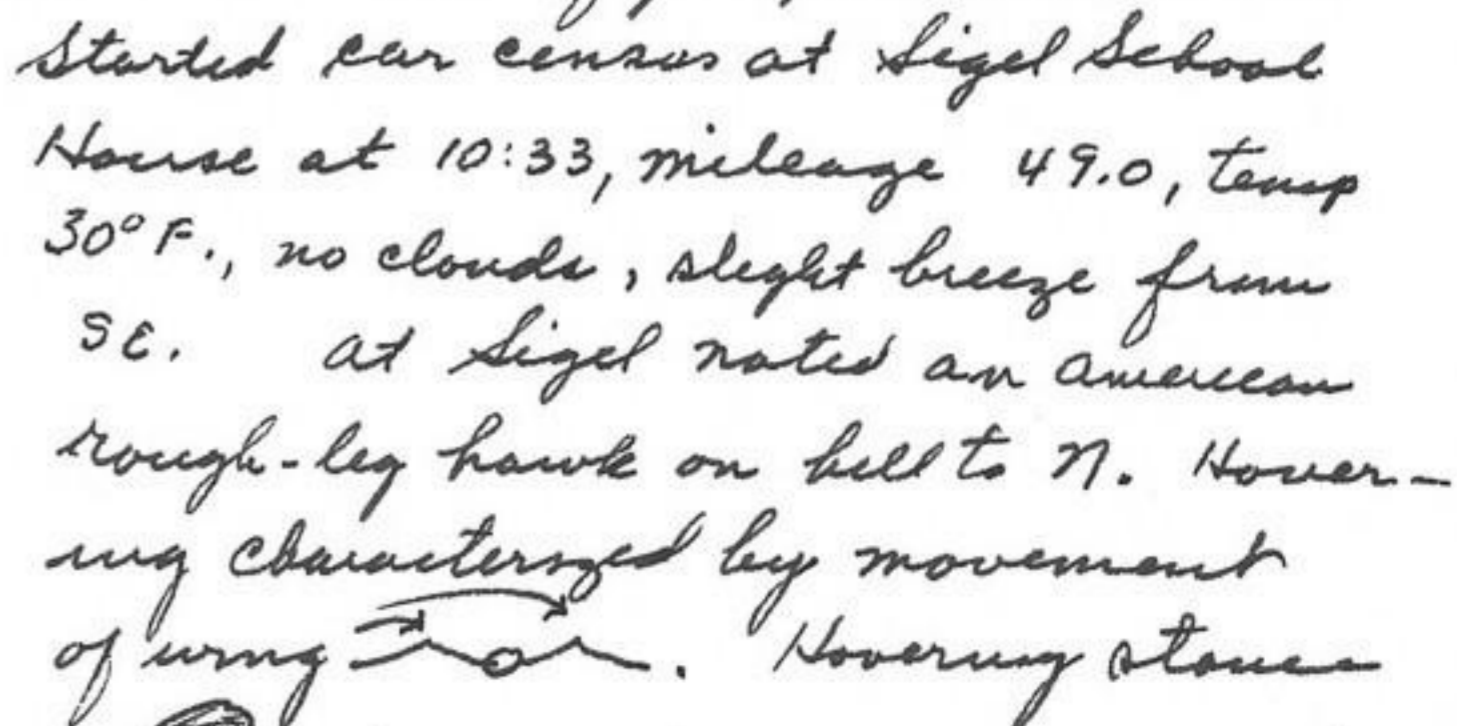 Started car census at Sigel School
House at 10:33, mileage 49.0, temp
30° F., no clouds, slight breeze from
SE. At Sigel noted an American
rough-leg hawk on hill to N. Hover-
ing characterized by movement
of wing . Hovering stance